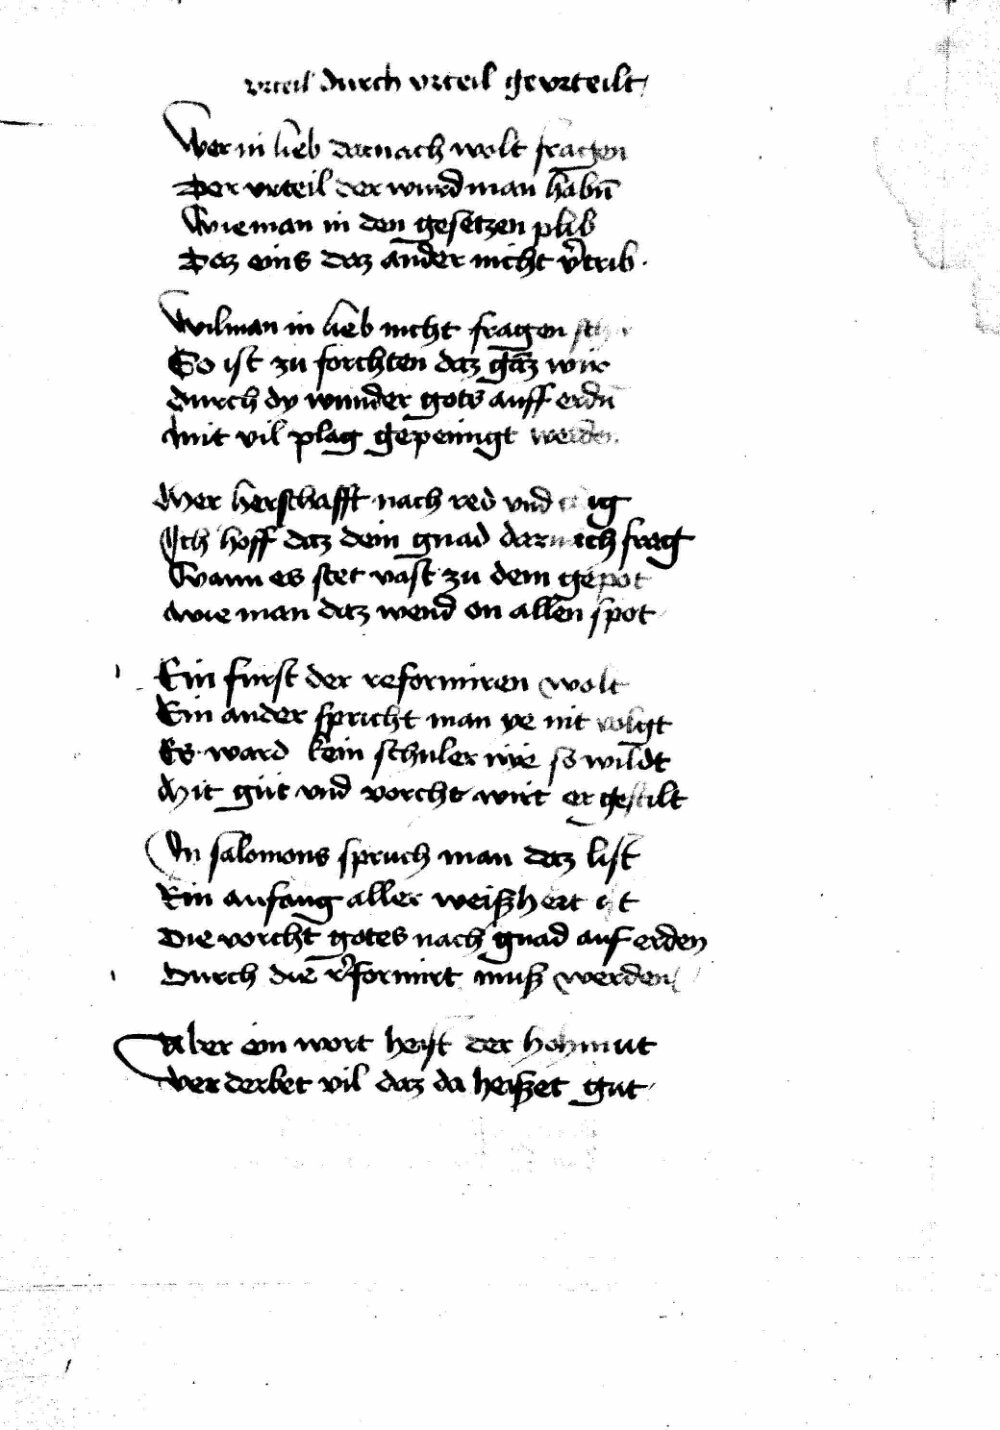 vrteil durch vrteil gevrteilt
Wer in lieb darnach wolt fragen
Der vrteil der wurd man habn̄
Wie man in den gesetzen plib
Daz eins daz ander nicht v̉trib.
Wil man in lieb nicht fragen
So ist zu forchten daz gancz wir
durch dy wunder gots auff erdn̄
mit vil plag gepeinigt werden
Mer herschafft nach red vnd
Ich hoff daz dein gnad darnach frag
Wann es stet vast zu dem gepot
wie man daz wend on allen spot
Ein furst der reformiren wolt
Ein ander spricht man ye nit volgt
Es ward kein schuler nye so wildt
Mit gut vnd vorcht wirt er gestilt
In salomons spruch man daz list
Ein anfang aller weiszheit ist
Die vorcht gotes nach gnad auf erden
Durch die r̉formirt musz werden
Aber ein wort heist der hohmut
verderbet vil daz da heiszet gut